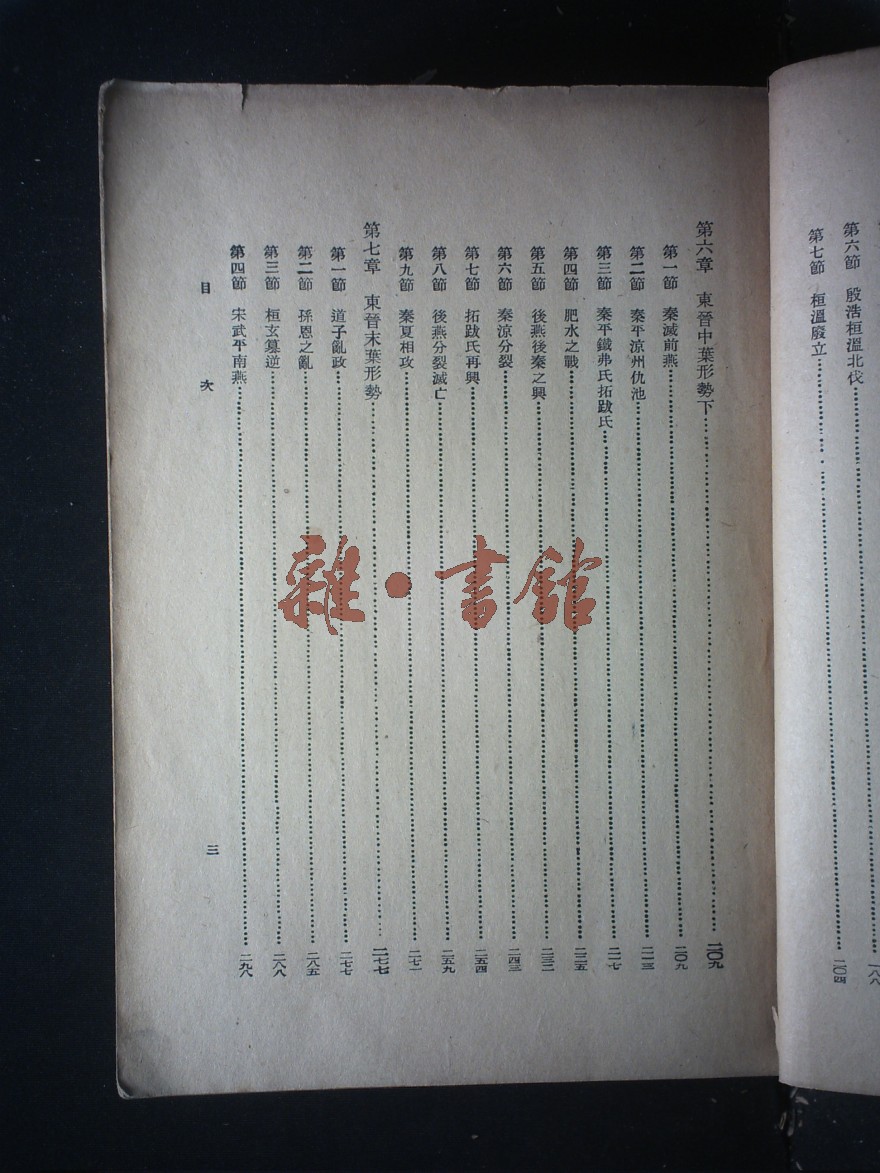 第六節　殷浩桓溫北伐……一八八
第七節　桓溫廢立……二〇四
第六章　東晉中葉形勢下……二〇九
第一節　秦滅前燕……二〇九
第二節　秦平涼州仇池……二一三
第三節　秦平鐵弗氏拓跋氏……二一七
第四節　肥水之戰……二二五
第五節　後燕後秦之興……二三二
第六節　秦涼分裂……二四三
第七節　拓跋氏再興……二五四
第八節　後燕分裂滅亡……二五九
第九節　秦夏相攻……二七一
第七章　東晉末葉形勢……二七七
第一節　道子亂政……二七七
第二節　孫恩之亂……二八五
第三節　桓玄篡逆……二八八
第四節　宋武平南燕……二九八
目次　三
雜·書館